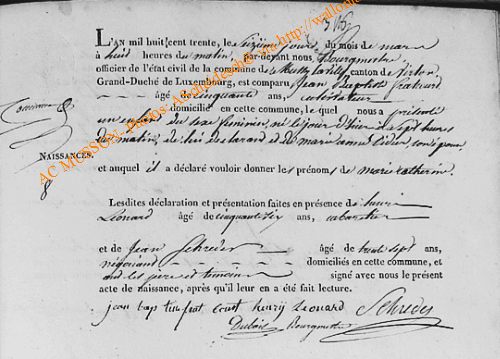 L'AN mil huit cent trente, le seizième jour du mois de mars
à huit heures du matin par-devant nous Bourgmestre
officier de l'état civil de la commune de canton de Virton
Grand-Duché de Luxembourg, est comparu Jean Baptiste
âgé de cinquante ans, cultivateur
domicilié en cette commune, lequel nous a présenté
un enfant du sexe feminin né le jour d'hier à sept heures
du matin, de lui déclarant et de marie anne son épouse
NAISSANCES.
8
et auquel il a déclaré vouloir donner les prénoms de marie catherine.
Lesdites déclaration et présentation faites en présence de henri
Léonard âgé de cinquante six ans, cabaretier
et de Jean Schreder âgé de trente sept ans,
négociant domiciliés en cette commune, et
ont les père et témoins signé avec nous le présent
acte de naissance, après qu'il leur en a été fait lecture.
jean bap henry Leonard Schreder
Bourgmestre
AC MUSSON Photos Archives http://wallonie